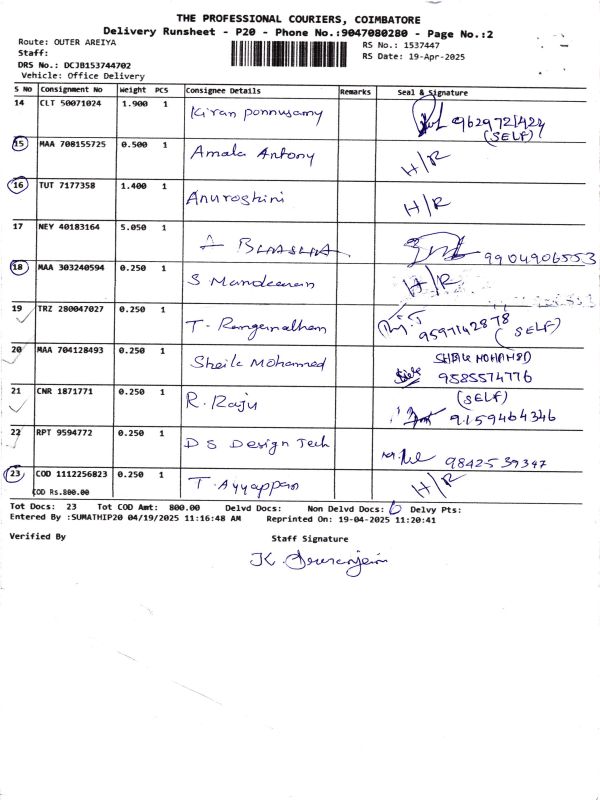 THE PROFESSIONAL COURIERS, COIMBATORE
Delivery Runsheet - P20 - Phone No.:9047080280 - Page No.:2
Route: OUTER AREIYA
RS No.: 1537447
Staff:
RS Date: 19-Apr-2025
DRS No.: DCJB153744702
Vehicle: Office Delivery
S No Consignment No Weight PCS Consignee Details Remarks Seal & Signature
14 CLT 50071024 1.900 1 Kiran ponnusamy 9629721424
(SELF)
15 MAA 708155725 0.500 1 Amala Antony H/R
16 TUT 7177358 1.400 1 Anuroshini H/R
17 NEY 40183164 5.050 1 9904906553
18 MAA 303240594 0.250 1 S H/R
19 TRZ 280047027 0.250 1 T. 9597142878 (SELF)
20 MAA 704128493 0.250 1 Sheik Mohamed SHEIK MOHAMED
9585574776
21 CNR 1871771 0.250 1 R. Raju (SELF)
9159464346
22 RPT 9594772 0.250 1 DS Design Tech 9842539347
23 COD 1112256823 0.250 1 T. Ayyappan H/R
COD Rs.800.00
Tot Docs: 23 Tot COD Amt: 800.00 Delvd Docs: Non Delvd Docs: 6 Delvy Pts:
Entered By :SUMATHIP20 04/19/2025 11:16:48 AM Reprinted On: 19-04-2025 11:20:41
Verified By Staff Signature